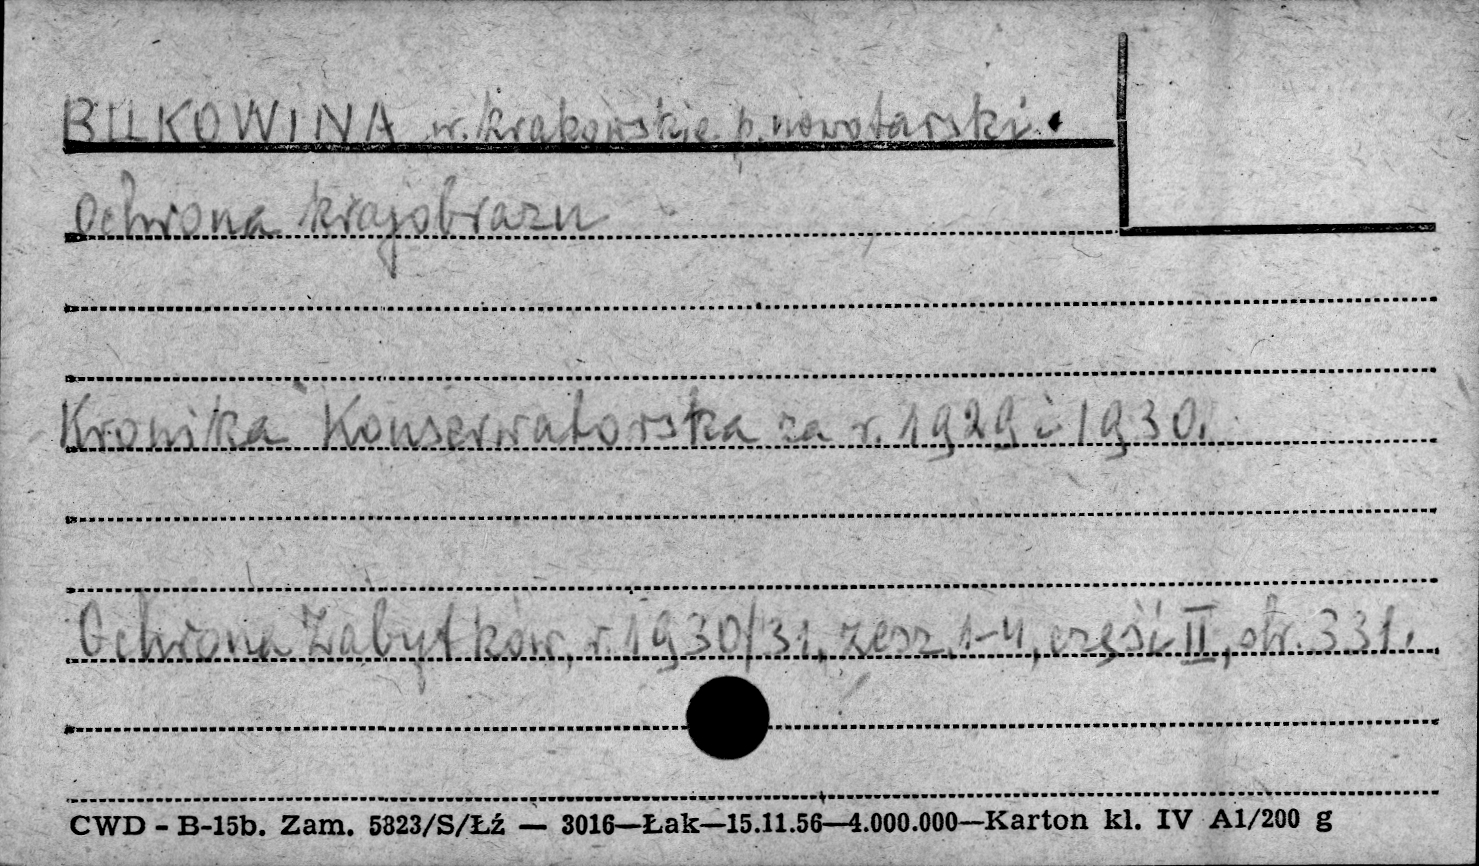 BUKOWINA w. krakowskie p. nowotarski.
Ochrona krajobrazu
Kronika Konserwatorska za r. 1929 i 1930.
Ochrona Zabytków, r. 1930/31, zesz. 1-4, część II, str. 331.
CWD - B-15b. Zam. 5823/S/Łź — 3016—Łak—15.11.56—4.000.000—Karton kl. IV A1/200 g